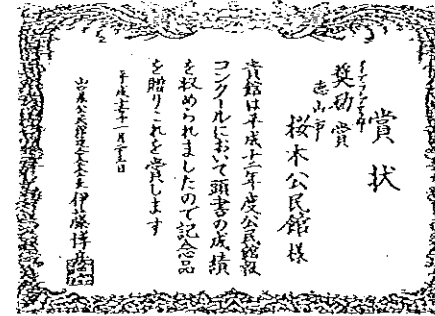 賞状
奨励賞
徳山市
桜木公民館様
貴館は平成十二年度公民館報
コンクールにおいて頭書の成績
を収められましたので記念品
を贈りこれを賞します
平成十三年一月二十三日
伊藤博彦